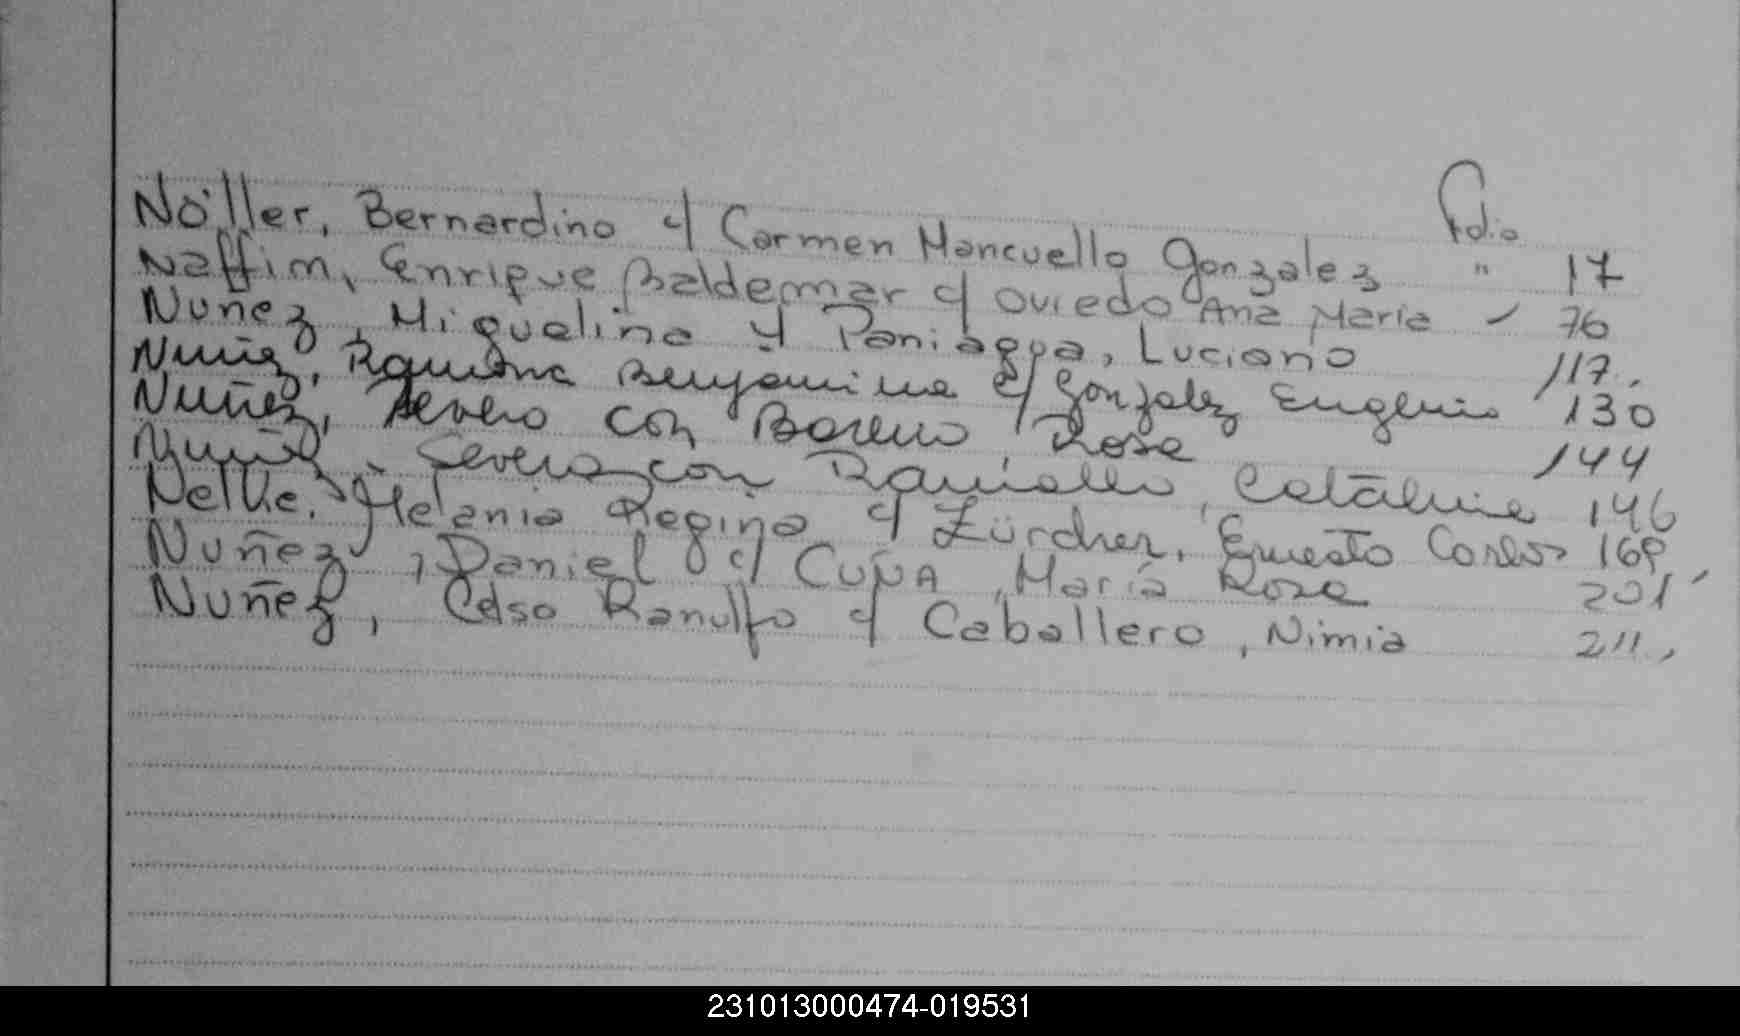 Folio
Nöller, Bernardino c/ Carmen Mancuello Gonzalez " 17
Naffim, Enrique Baldemar c/ Oviedo Ana Maria - 76
Nuñez, Miguelina y Paniagua, Luciano 117.
Nuñez, Ramona Benjamina c/ Gonzalez Eugenio 130
Nuñez, Severo con Bareiro, Rosa 144
Nuñez, Severo con Ramallo, Catalina 146
Melania Regina c/ Zürcher, Ernesto Carlos 169
Nuñez, Daniel c/ Cuña, María Rosa 201
Nuñez, Celso Ranulfo c/ Caballero, Nimia 211,
231013000474-019531